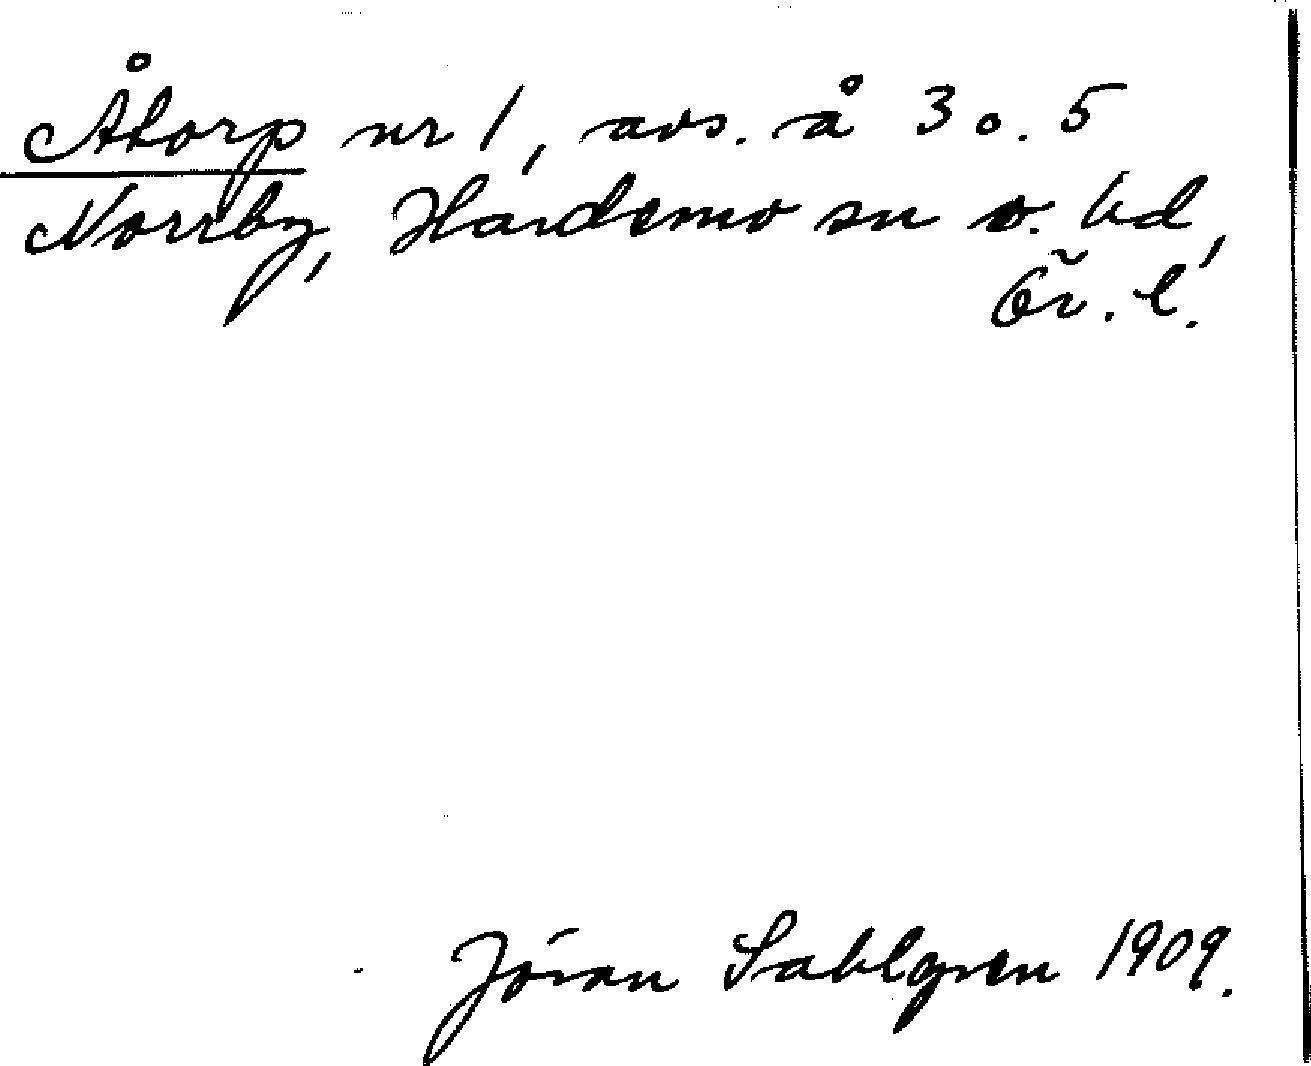 Åtorp nr 1, avs. å 3 o. 5
Norrby, Hardemo sn o. hd,
Ör. l.
Jöran Sahlgren 1909.